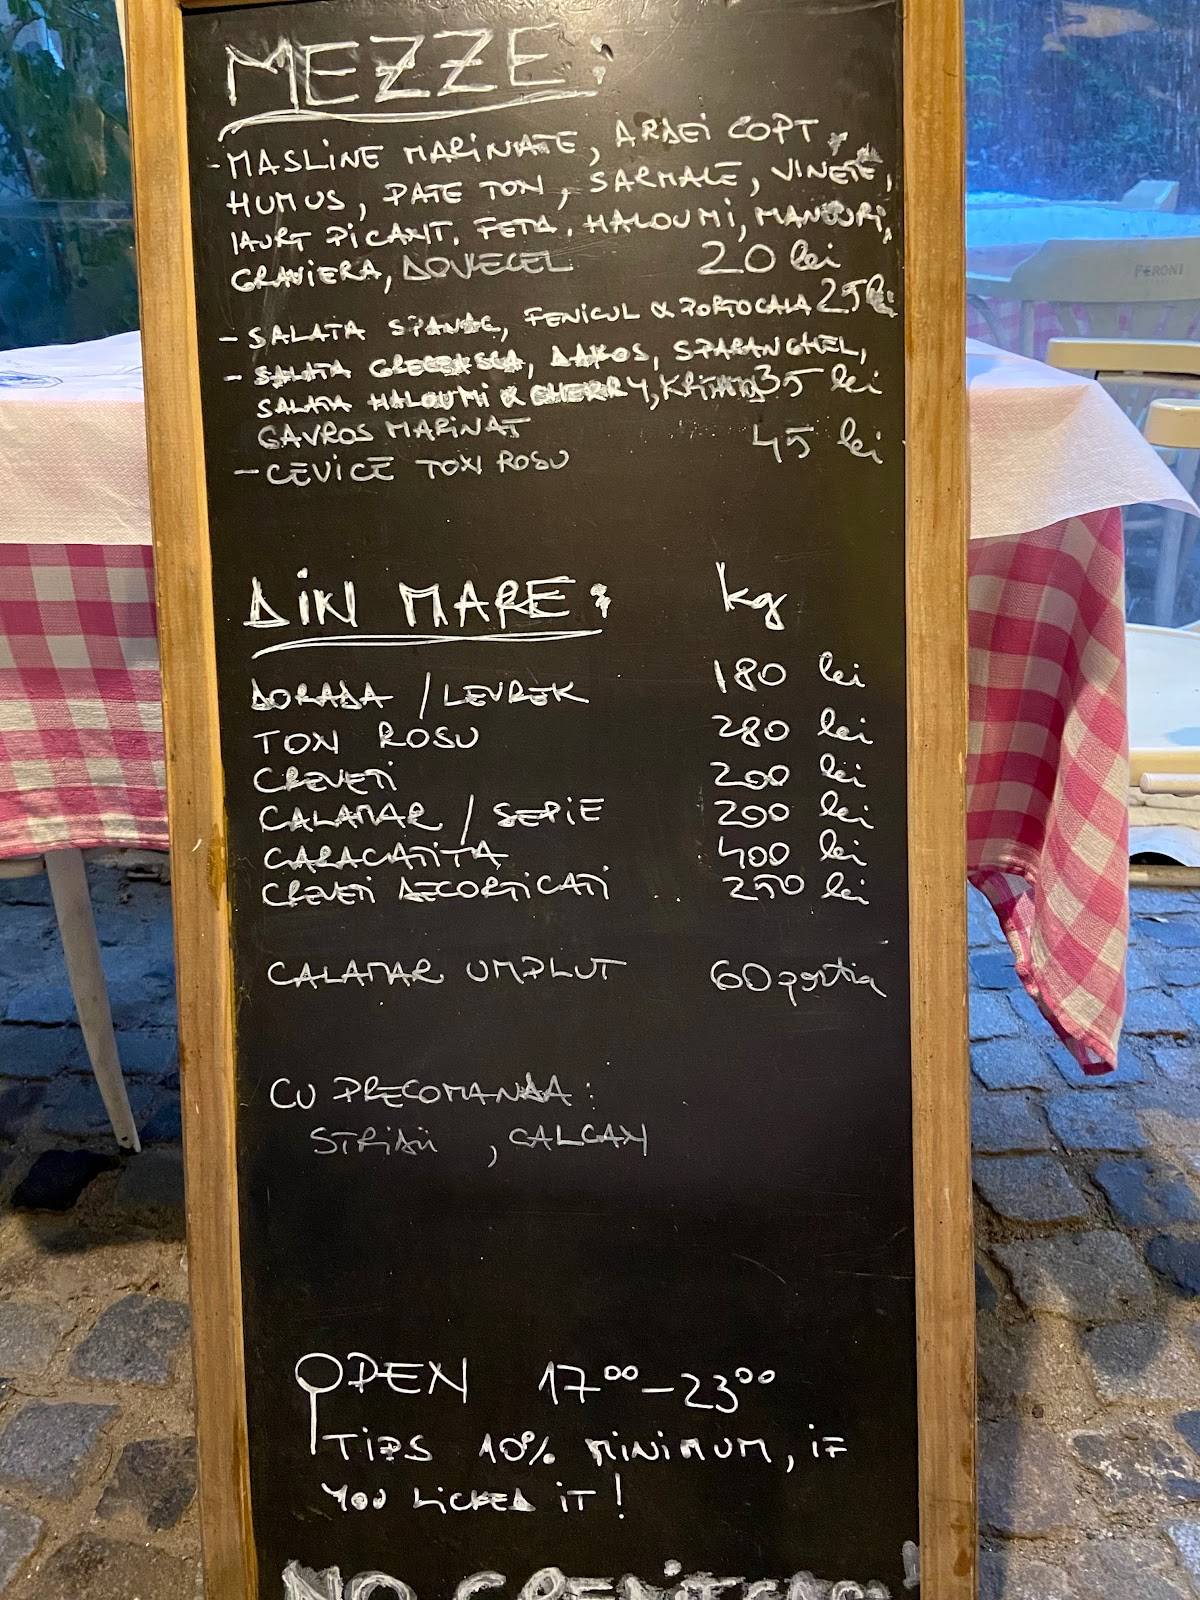 MEZZE:
- MASLINE MARINATE, ARDEI COPT,
HUMUS, PATE TON, SARMALE, VINETE,
IAURT PICANT, FETA, HALOUMI, MANOURI,
GRAVIERA, DOVECEL 20 lei
- SALATA SPANAC, FENICUL & PORTOCALA 25 lei
- SALATA GRECEASCA, DAKOS, SPARANGHEL,
SALATA HALOUMI & CHERRY, 35 lei
GAVROS MARINAT
- CEVICE TON ROSU 45 lei
DIN MARE: kg
DORADA / LEVREK 180 lei
TON ROSU 280 lei
CREVETI 200 lei
CALAMAR / SEPIE 200 lei
CARACATITA 400 lei
CREVETI DECORTICATI .. 250 lei
CALAMAR UMPLUT 60 portia
CU PRECOMANDA:
STRIDII, CALCAN
OPEN 17⁰⁰-23⁰⁰
TIPS 10% MINIMUM, IF
YOU LICKED IT!
NO CREDIT CARD
PERONI